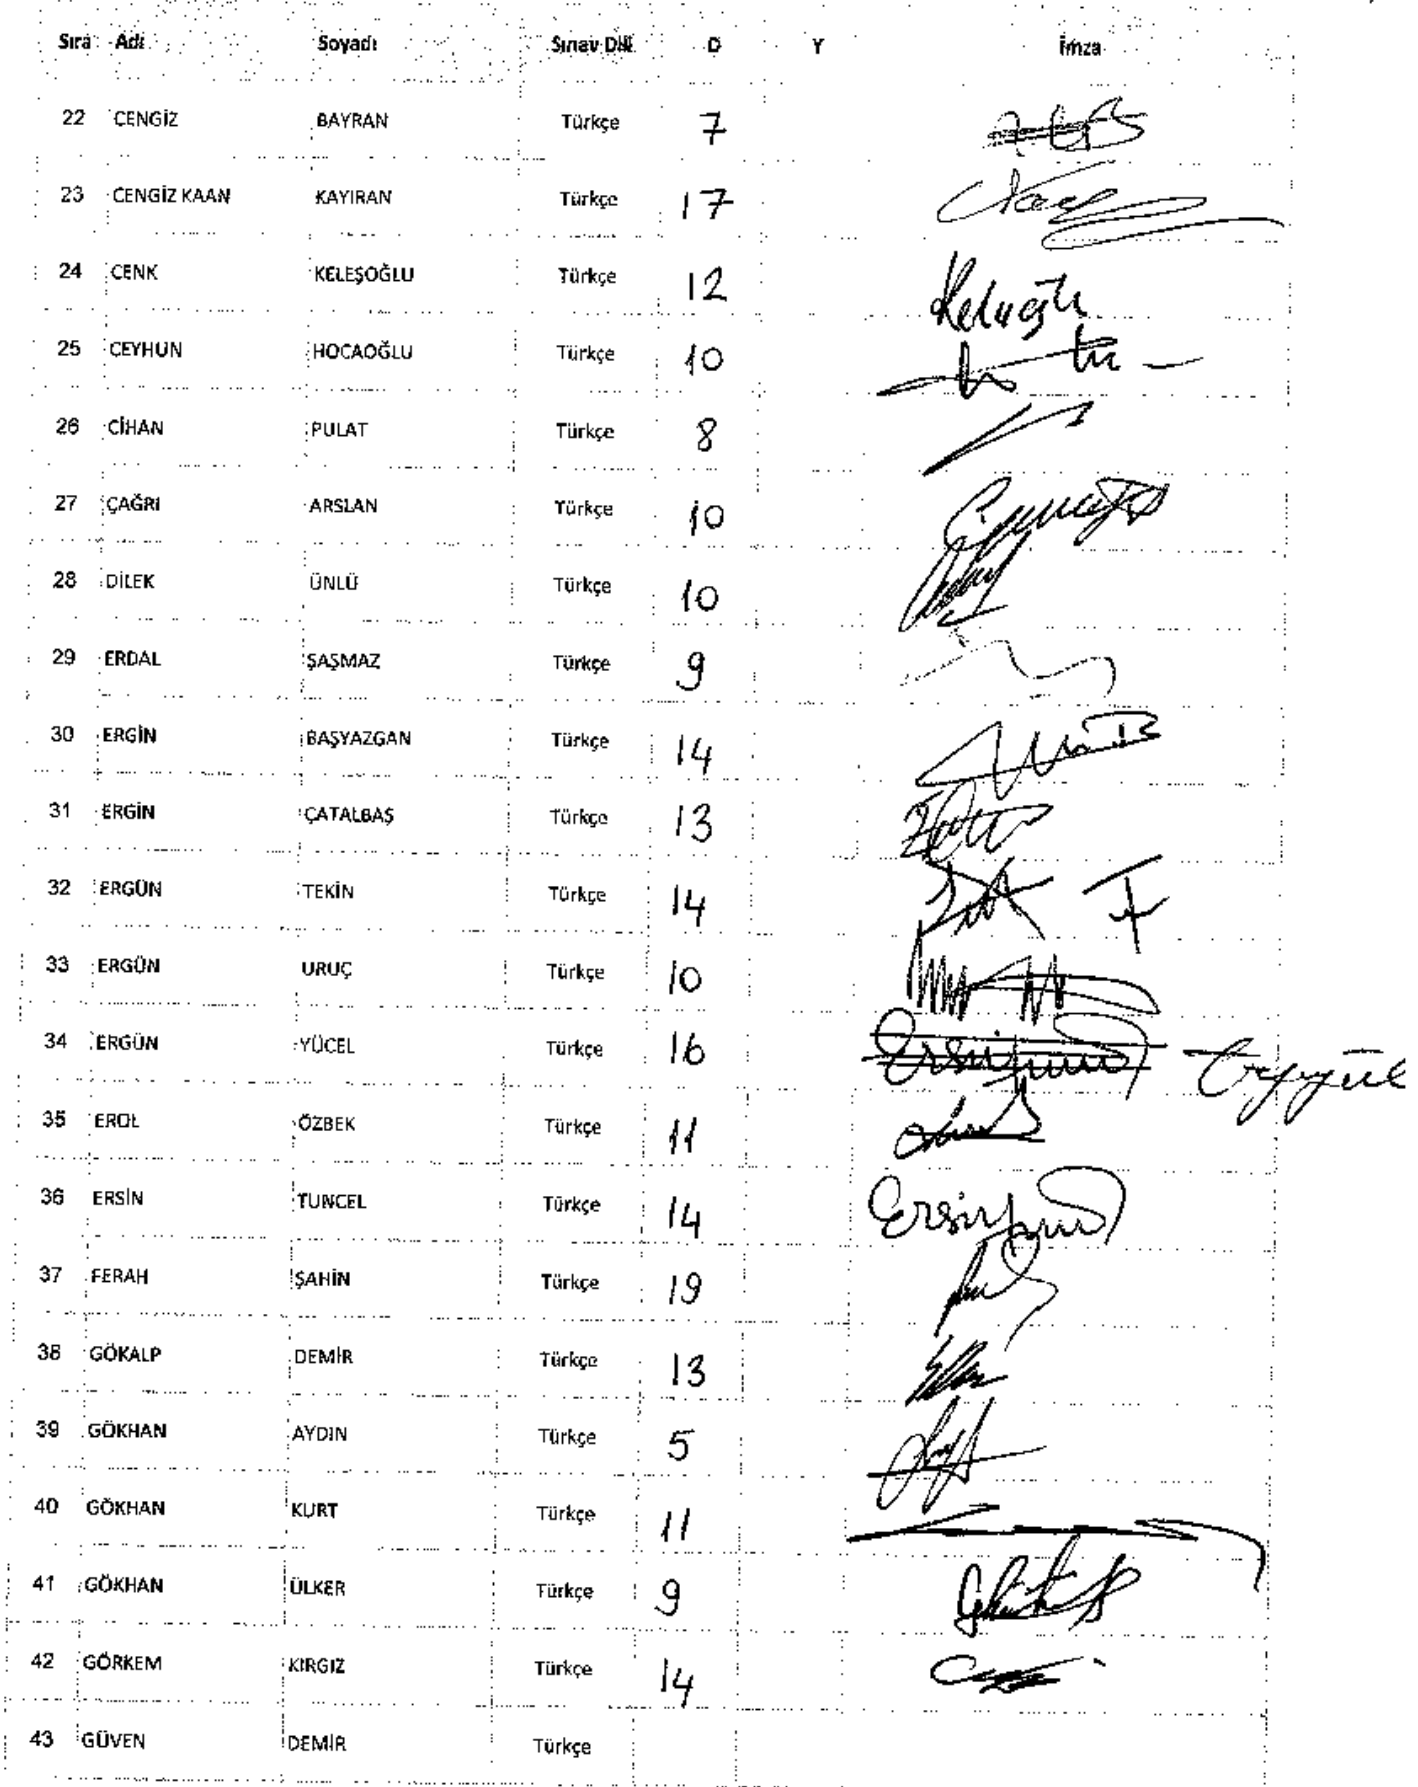 Sıra Adı Soyadı Sınav Dili D Y İmza
22 CENGİZ BAYRAN Türkçe 7
23 CENGİZ KAAN KAYIRAN Türkçe 17
24 CENK KELEŞOĞLU Türkçe 12
25 CEYHUN HOCAOĞLU Türkçe 10
26 CİHAN PULAT Türkçe 8
27 ÇAĞRI ARSLAN Türkçe 10
28 DİLEK ÜNLÜ Türkçe 10
29 ERDAL ŞAŞMAZ Türkçe 9
30 ERGİN BAŞYAZGAN Türkçe 14
31 ERGİN ÇATALBAŞ Türkçe 13
32 ERGÜN TEKİN Türkçe 14
33 ERGÜN URUÇ Türkçe 10
34 ERGÜN YÜCEL Türkçe 16
35 EROL ÖZBEK Türkçe 11
36 ERSİN TUNCEL Türkçe 14
37 FERAH ŞAHİN Türkçe 19
38 GÖKALP DEMİR Türkçe 13
39 GÖKHAN AYDIN Türkçe 5
40 GÖKHAN KURT Türkçe 11
41 GÖKHAN ÜLKER Türkçe 9
42 GÖRKEM KIRGIZ Türkçe 14
43 GÜVEN DEMİR Türkçe